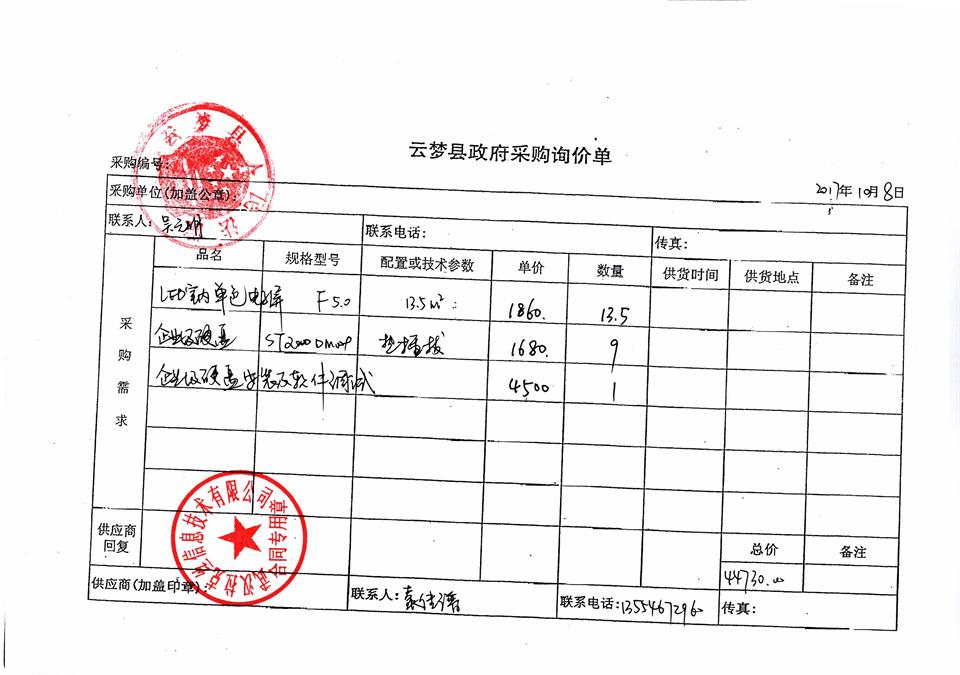 云梦县政府采购询价单
采购编号:
2017年10月8日
采购单位(加盖公章):
云梦县人 法
联系人:
联系电话:
传真:
品名 规格型号 配置或技术参数 单价 数量 供货时间 供货地点 备注
采购需求
LED室内单色电子屏 F5.0 13.5m² 1860. 13.5
企业级硬盘 热插拔 1680. 9
企业级硬盘安装及软件调试 4500 1
供应商回复
总价 备注
44730.00
武汉拉克丝信息技术有限公司
合同专用章
供应商(加盖印章):
联系人:
联系电话:13554672960
传真: